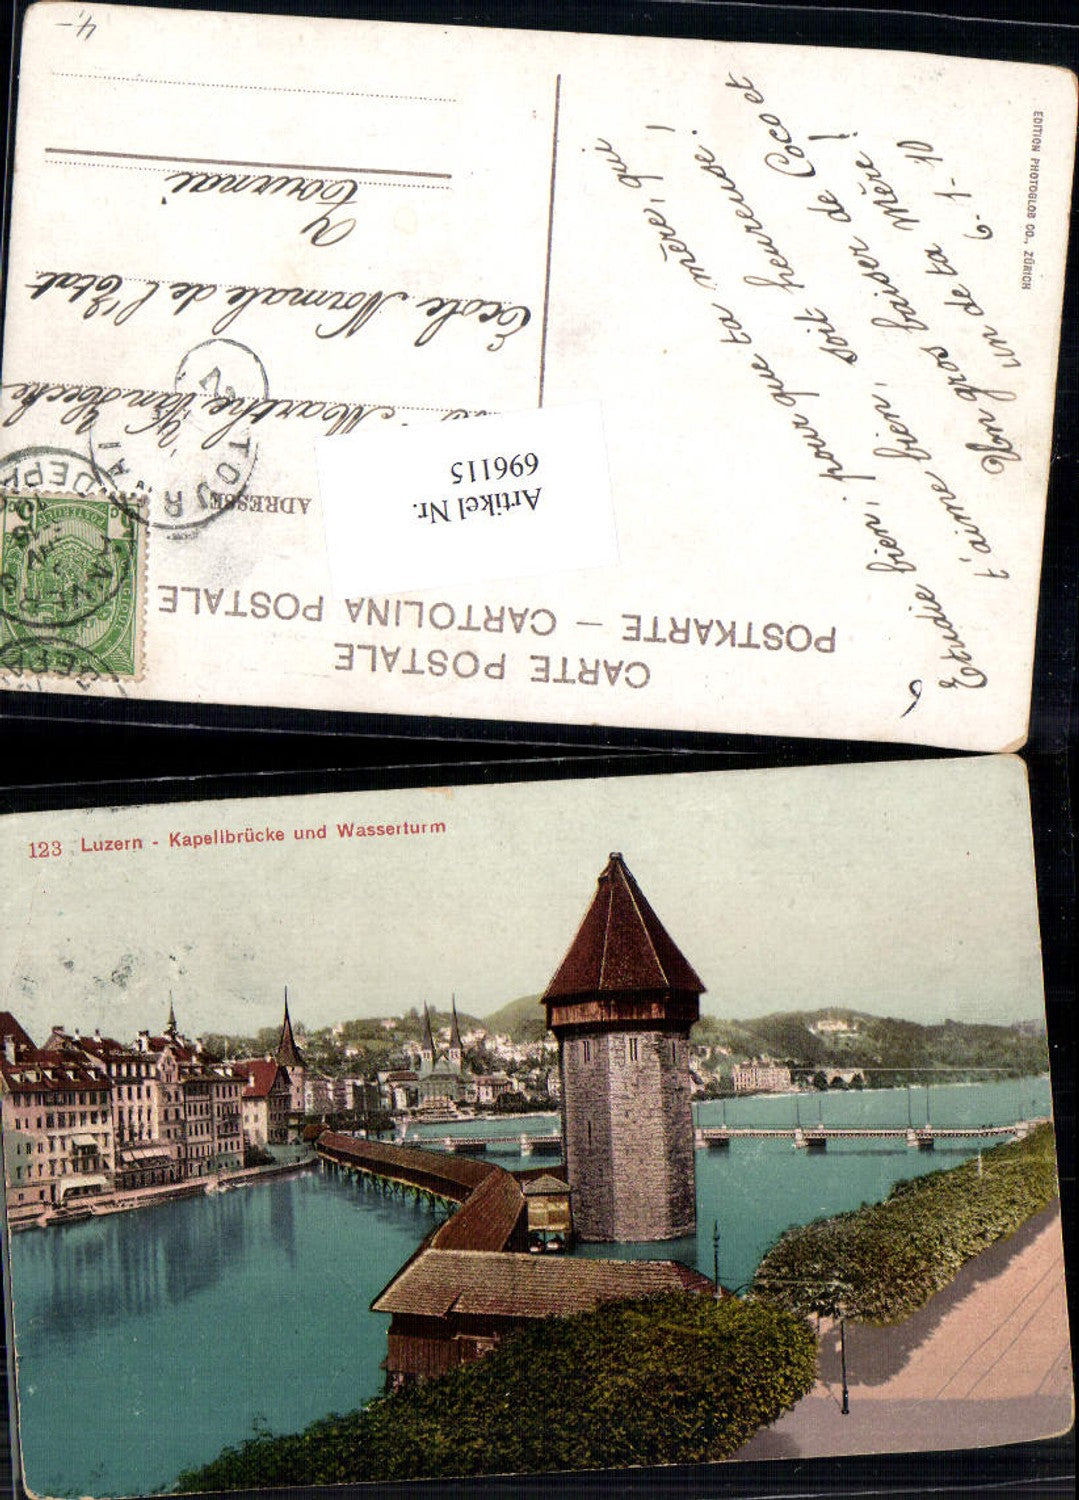 4,-
CARTE POSTALE
POSTKARTE – CARTOLINA POSTALE
ADRESSE
Artikel Nr.
696115
Marthe Vanhecke
École Normale de l'État
Tournai
TOURNAI
EDITION PHOTOGLOB CO., ZÜRICH
6
Etudie bien, pour que ta mère, qui
t'aime bien, soit heureuse!
Un gros baiser de Coco et
un de ta mère!
6-1-10
123 Luzern - Kapellbrücke und Wasserturm